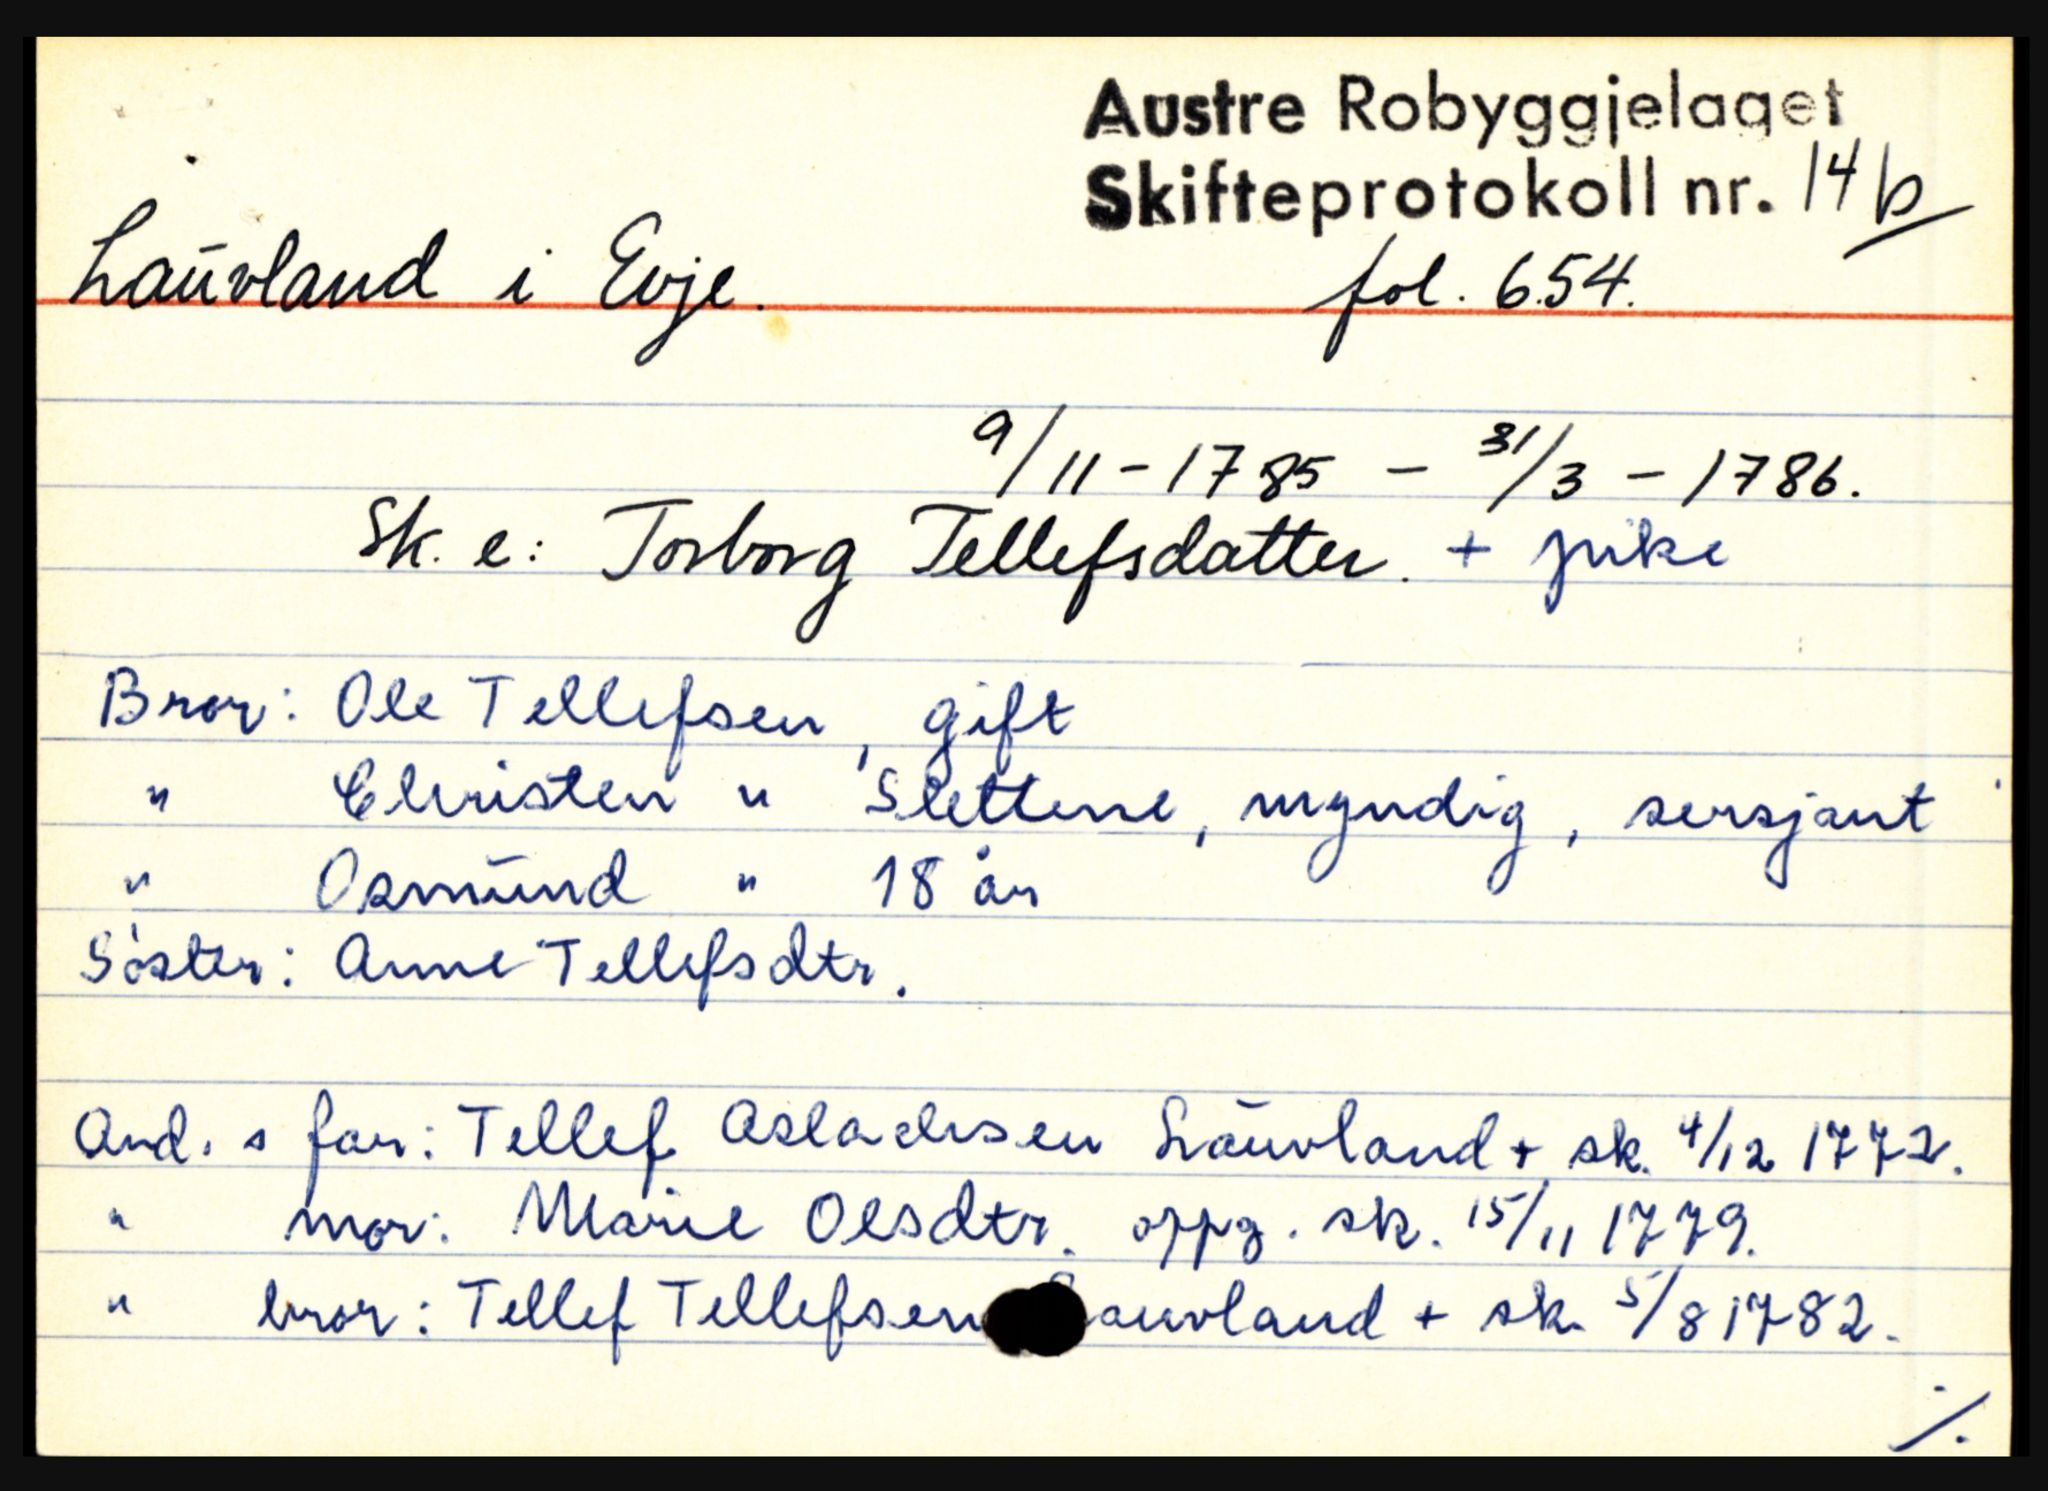 Austre Robyggjelaget
Skifteprotokoll nr. 14b
Lauvland i Evje. fol. 654.
9/11-1785 - 31/3 - 1786.
Sk. e: Torborg Tellefsdatter. + pike
Bror: Ole Tellefsen, gift
" Christen " Slettene, myndig, sersjant
" Osmund " 18 år
Søster: Anne Tellefsdtr.
Avd. s far: Tellef Aslachsen Lauvland + sk. 4/12 1772.
" mor: Marie Olsdtr. oppg. sk. 15/11 1779.
" bror: Tellef Tellefsen Lauvland + sk. 5/8 1782.
./.